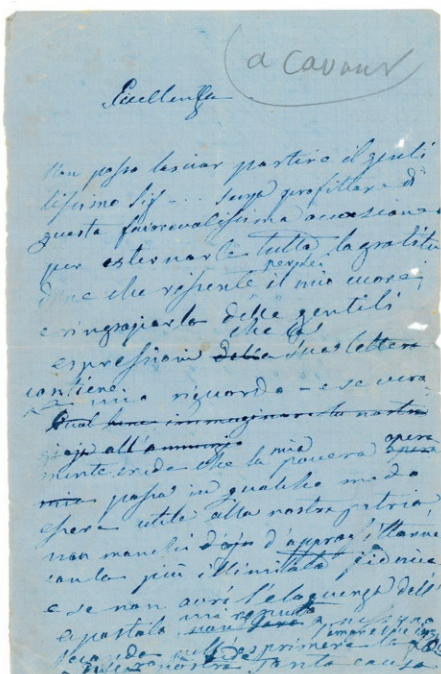 a Cavour
Eccellenza
Non posso lasciar partire il genti
lissimo Sig... senza profittare di
questa favorevolissima occasione
per esternarle tutta la gratitu
per lei
dine che risente il mio cuore
e ringraziarla delle gentili
che la
espressioni della Sua lettera
contiene
mio riguardo - e se vera
Qual
immaginare la nostra
gioja all'annunzio
mia opera
mente crede che la povera opera
mia possa in qualche modo
essere utile alla nostra patria,
non manchi d'approfittarne
con la più illimitata fiducia
e se non avrò l'eloquenza dell'
apostolo
esprimere la
nostra santa causa